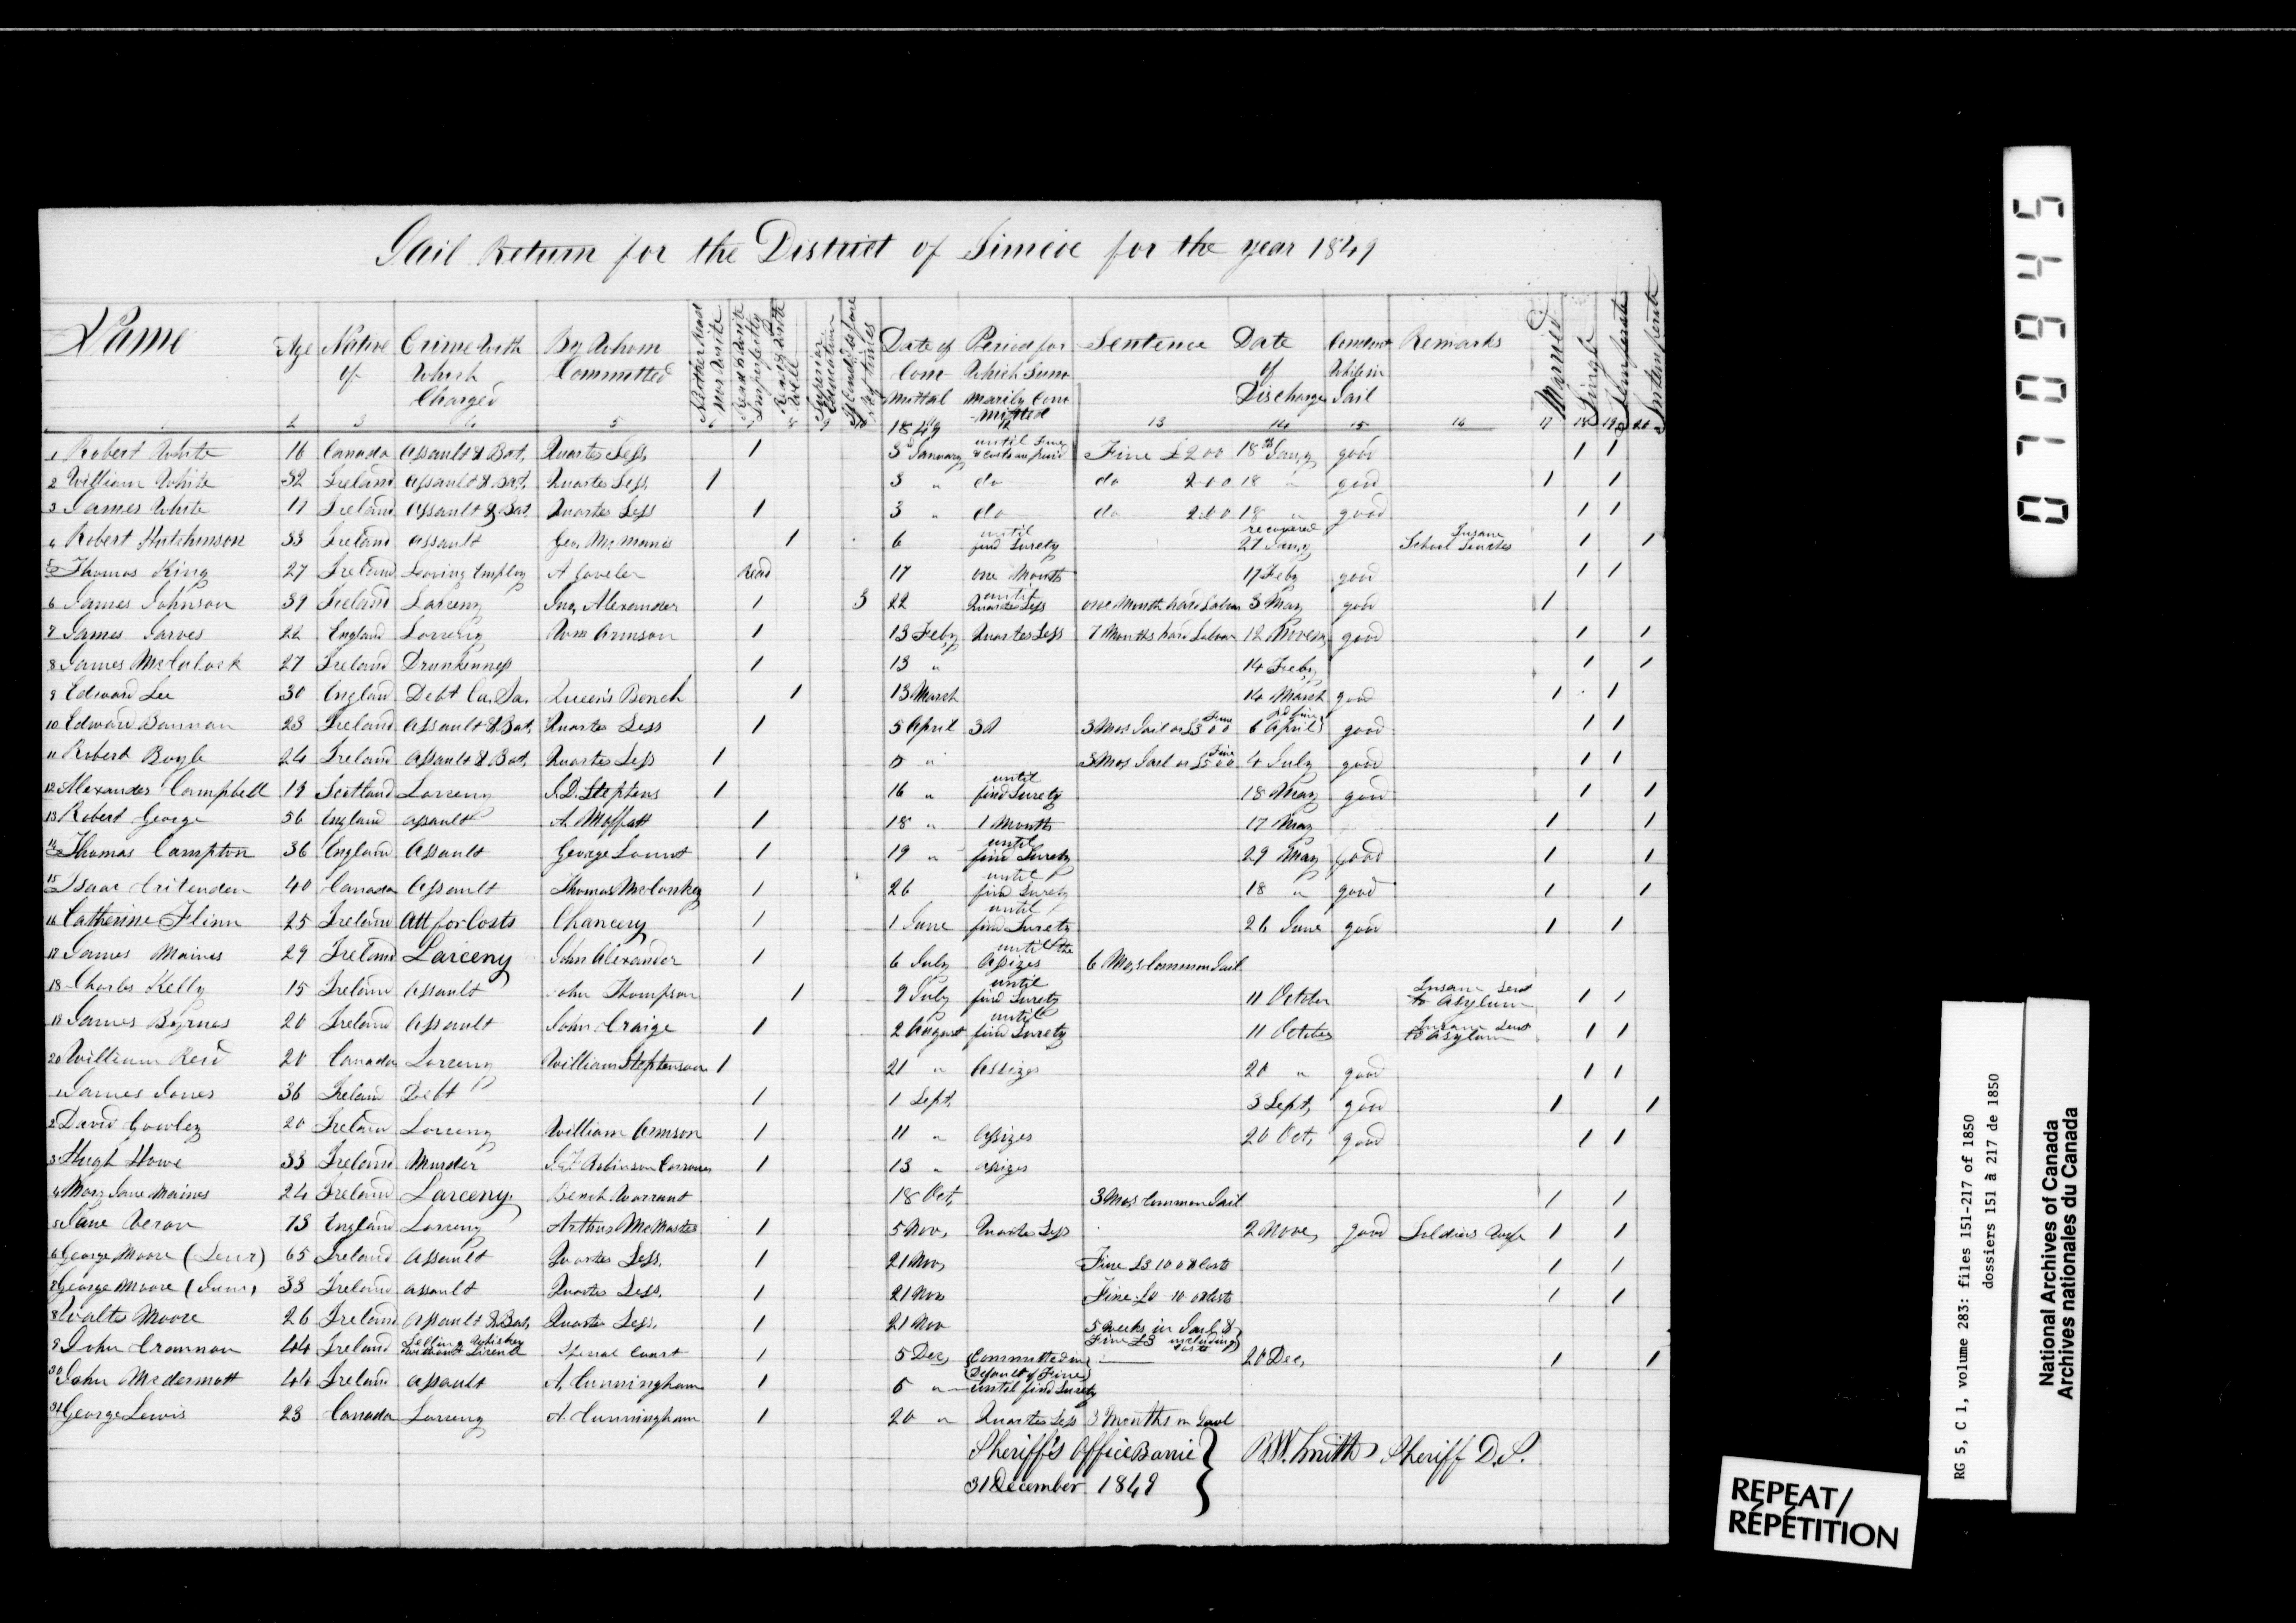 Gail Return for the District of Simcoe for the year 1849
Name Age Native of Crime With Which Charged By Whom Committed Neither Read nor Write Read & Write Imperfectly Read & Write Well Superior Education Date of Committal Period for Which Summarily Committed Sentence Date of Discharge Conduct While in Gail Remarks Married Single Temperate Intemperate
2 3 4 5 6 7 8 9 10 11 12 13 14 15 16 17 18 19 20
1849
1 Robert White 16 Canada Assault & Bat. Quarter Sess. 1 3d January until Fine & Costs are paid Fine £2 0 0 18th Jany good 1 1
2 William White 32 Ireland Assault & Bat. Quarter Sess. 1 3 " do do 2 0 0 18 " good 1 1
3 James White 17 Ireland Assault & Bat. Quarter Sess 1 3 " do do 2 0 0 18 " good 1 1
4 Robert Hutchinson 33 Ireland Assault Geo. McManis 1 6 until find Surety recovered 27 Jany Insane School 1 1
5 Thomas King 27 Ireland Leaving Employ A Read 17 one Month 17 Feby good 1 1
6 James Johnson 39 Ireland Larceny Jno. Alexander 1 3 22 until Quarter Sess one Month hard Labour 3 May good 1
7 James Jarves 22 England Larceny Wm Armson 1 13 Feby Quarter Sess 7 Months hard Labour 12 good 1 1
8 James McCulock 27 Ireland Drunkenness 1 13 " 14 Feby 1 1
9 Edward Lee 30 England Debt Ca. Sa. Queen's Bench 1 13 March 14 March good 1 1
10 Edward Bannan 23 Ireland Assault & Bat. Quarter Sess 1 5 April 3 3 Mos Gail or £3 0 0 Fine pd fine 6 April good 1 1
11 Robert Boyle 24 Ireland Assault & Bat. Quarter Sess 1 5 " 3 Mos Gail or £5 0 0 Fine 4 July good 1 1
12 Alexander Campbell 19 Scotland Larceny J. D. Stephens 1 16 " until find Surety 18 May good 1 1
13 Robert George 56 England Assault A. Moffatt 1 18 " 1 Months 17 May 1 1
14 Thomas Campton 36 England Assault George Lount 1 19 " until find Surety 29 May good 1 1
15 Isaac Critenden 40 Canada Assault Thomas McConkey 1 26 until find Surety 18 " good 1 1
16 Catherine Flinn 25 Ireland Att for Costs Chancery 1 1 June until find Surety 26 June good 1 1
17 James Maines 29 Ireland Larceny John Alexander 1 6 July until the Assizes 6 Mos Common Gail
18 Charles Kelly 15 Ireland Assault John Thompson 1 9 July until find Surety 11 October Insane Sent to Asylum 1 1
19 James Byrnes 20 Ireland Assault John Craige 1 2 August until find Surety 11 October Insane Sent to Asylum 1 1
20 William Reid 20 Canada Larceny William Stephenson 1 21 " Assizes 20 " good 1 1
1 James Jones 36 Ireland Debt 1 1 Sept. 3 Sept. good 1 1
2 David Gowley 20 Ireland Larceny William Armson 1 11 " Assizes 20 Oct. good 1 1
3 Hugh Howe 33 Ireland Murder Robinson Corroner 1 13 " Assizes
4 Mary Jane Maines 24 Ireland Larceny. Bench Warrant 18 Oct. 3 Mos Common Gail 1 1
5 Jane Veron 73 England Larceny Arthur McMaster 1 5 Nov. Quarter Sess 2 Nove. good Soldiers Wife 1 1
6 George Moore (Senr) 65 Ireland Assault Quarter Sess. 1 21 Nov. Fine £3 10 0 & Costs 1 1
7 George Moore (Junr) 33 Ireland Assault Quarter Sess. 1 21 Nov Fine £0 10 0 & Costs 1 1
8 Walter Moore 26 Ireland Assault & Bat. Quarter Sess. 1 21 Nov 5 weeks in Gaol & Fine £3 including Costs
9 John Crannan 44 Ireland Selling Whiskey without Licence Special Court 1 5 Dec. Committed in Default of Fine 20 Dec. 1 1
30 John McDermott 44 Ireland Assault A. Cunningham 1 6 " until find Surety
31 George Lewis 23 Canada Larceny A. Cunningham 1 20 " Quarter Sess 3 Months in Gaol
Sheriff's Office Barrie } B.W. Smith Sheriff D.S.
31 December 1849
0710945
RG 5, C 1, volume 283: files 151-217 of 1850
dossiers 151 à 217 de 1850
National Archives of Canada
Archives nationales du Canada
REPEAT/
RÉPÉTITION